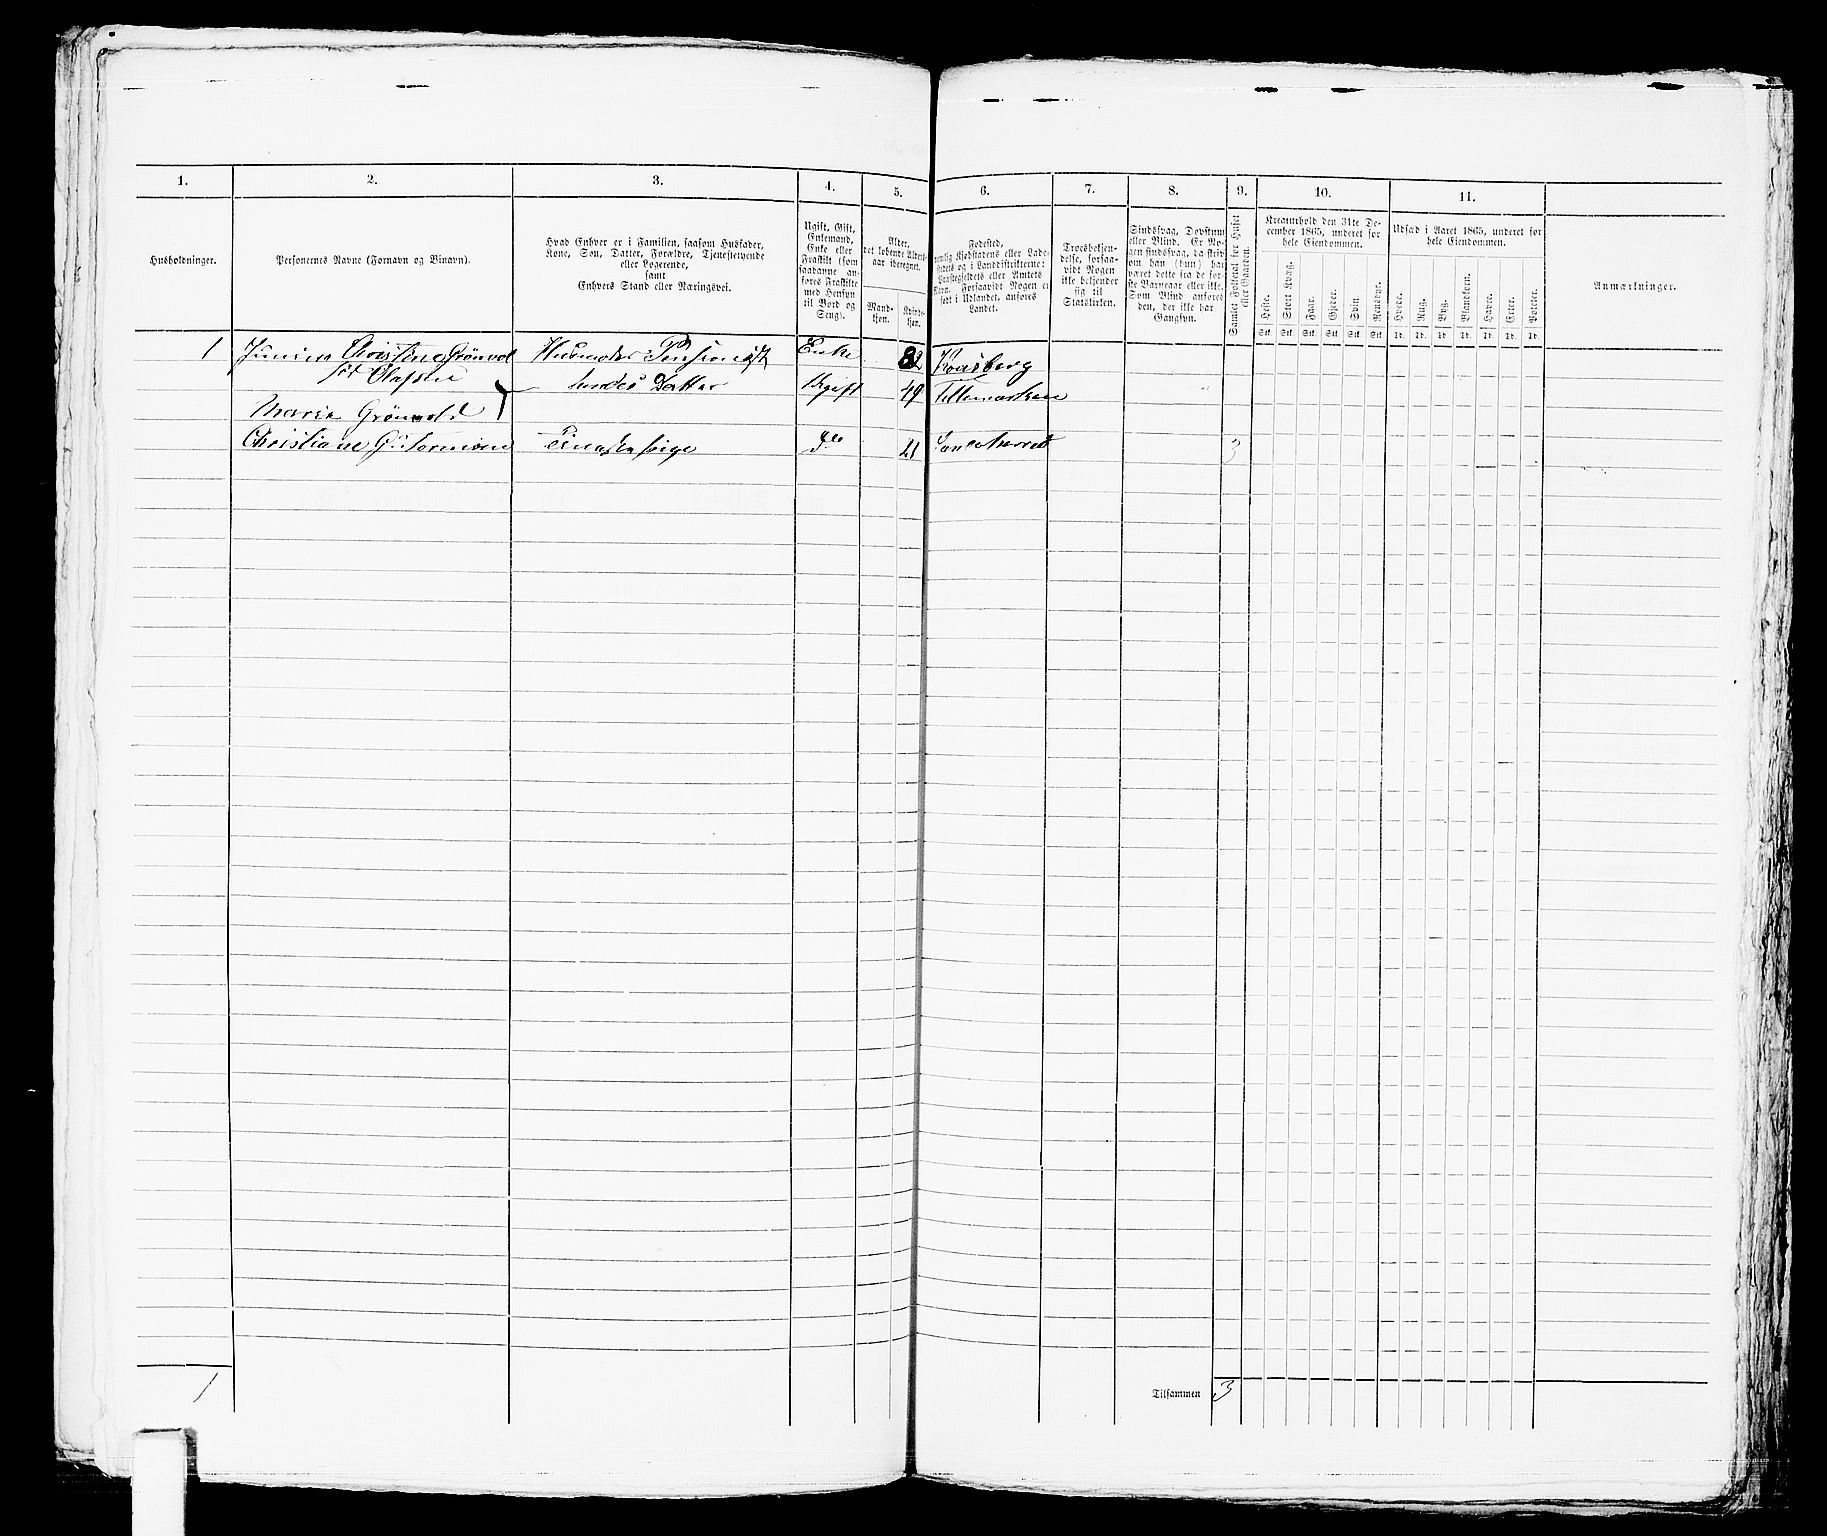 1. 2. 3. 4. 5. 6. 7. 8. 9. 10. 11.
Husholdninger.
Personernes Navne (Fornavn og Binavn).
Hvad Enhver er i Familien, saasom Husfader,
Kone, Søn, Datter, Forældre, Tjenestetyende
eller Logerende,
samt
Enhvers Stand eller Næringsvei.
Ugift, Gift,
Enkemand,
Enke eller
Fraskilt (som
saadanne an-
føres Fraskilte
med Hensyn
til Bord og
Seng).
Alder,
det løbende Alders-
aar iberegnet.
Mand-
kjøn.
Kvinde-
kjøn.
Fødested,
nemlig Kjøbstadens eller Lade-
stedets og i Landdistrikterne:
Præstegjeldets eller Amtets
Navn. Forsaavidt Nogen er
født i Udlandet, anføres
Landet.
Troesbekjen-
delse, forsaa-
vidt Nogen
ikke bekjender
sig til
Statskirken.
Sindssvag, Døvstum
eller Blind. Er No-
gen sindssvag, da skriv
om han (hun) har
været dette fra de før-
ste Barneaar eller ikke.
Som Blind anføres
den, der ikke har
Gangsyn.
Samlet Folketal for Huset
eller Gaarden.
Kreaturhold den 31te De-
cember 1865, underet for
hele Eiendommen.
Heste. Stort Kvæg. Faar. Gjeder. Svin. Rensdyr.
Stk. Stk. Stk. Stk. Stk. Stk.
Udsæd i Aaret 1865, underet for
hele Eiendommen.
Hvede. Rug. Byg. Blandkorn. Havre. Erter. Poteter.
Td. Td. Td. Td. Td. Td. Td.
Anmærkninger.
1 Christine Grönvol Husmoder Pensionist Enke 82 Konsberg
föd Olafsen
hendes Datter Ugift 49 Tellemarken
Maria Grönvold
Christiane Tjenestepige do 21 3
1 Tilsammen 3